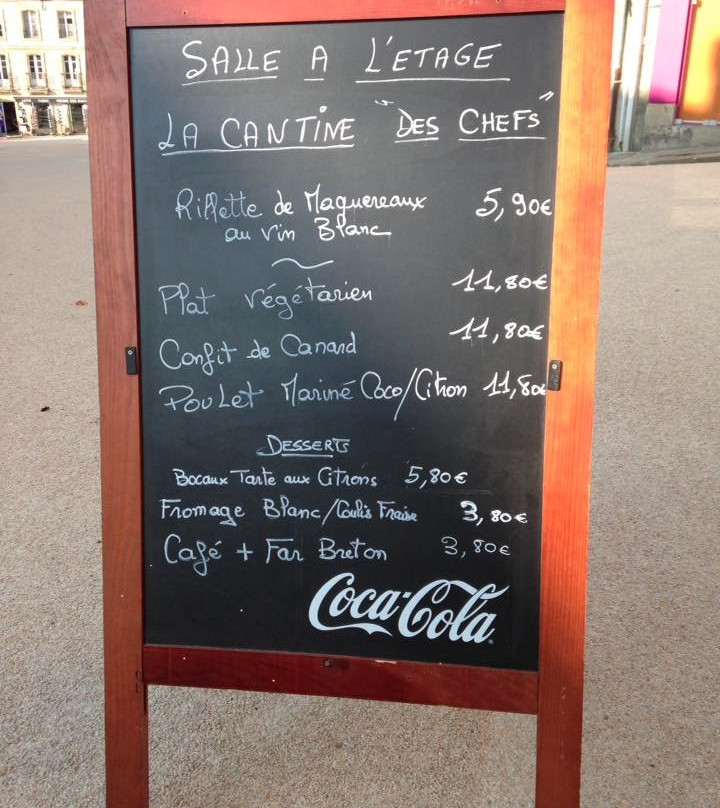 SALLE A L'ETAGE
LA CANTINE "DES CHEFS"
Rillette de Maquereaux 5,90€
au vin Blanc
Plat végétarien 11,80€
Confit de Canard 11,80€
POULET Mariné Coco/Citron 11,80€
DESSERTS
Bocaux Tarte aux Citrons 5,80€
Fromage Blanc/Coulis Fraise 3,80€
Café + Far Breton 3,80€
Coca-Cola